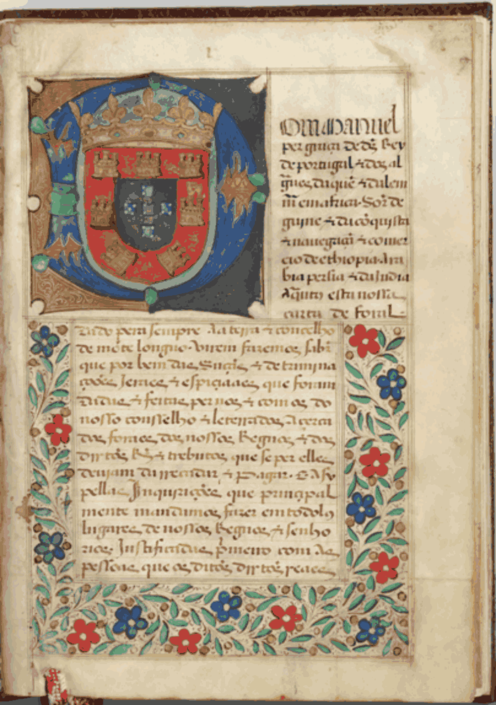 Om Manuel
per graça de ds Rey
de portugal & dos al
gues daquē & dalem
m em africa. Sor de
guine & da cōquista
& navegaçā & comer
cio de ethiopia ara
bia persia & da India
A quātos esta nossa
carta de foral
dado pera sempre Aa terra & concelho
de mōte longuo. virem fazemos saber
que por bem das & detrimina
ções geraes & espiciaaes que foram
dadas & feitas per nos & com os do
nosso consselho & leterados. Acerca
dos foraes dos nossos Regnos & dos
dirtos & trebutos que se per elles
deviam darrecadar & pagar. & Assy
pellas Inquirições que principal
mente mandamos fazer em todolos
lugares de nossos Regnos & senho
rios. Justificadas primeiro com as
pessoas que os ditos dirtos reaes